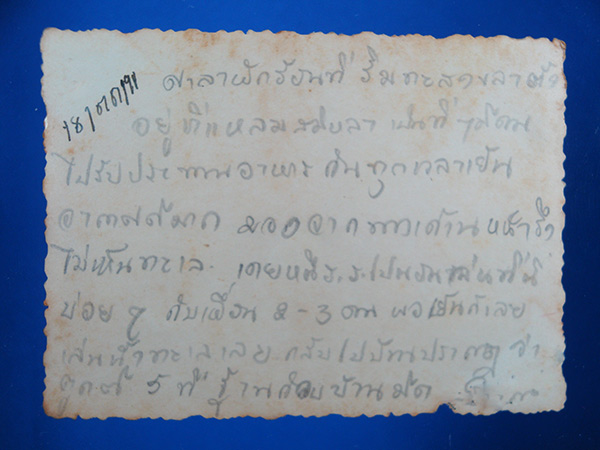 18/ตค/91
ศาลาพักร้อนที่ ริมทะเลสงขลา
อยู่ที่แหลมสมิหลา เป็นที่ ๆ มีคน
ไปรับประทานอาหาร กันทุกเวลาเย็น
อากาศดีมาก มองจากทางด้านหน้า
ไม่เห็นทะเล เคยหนี ร.ร. ไปนอนเล่นที่นี่
บ่อย ๆ กับเพื่อน 2-3 คน พอเย็นก็เลย
เล่นน้ำทะเลเลย กลับไปบ้านปรากฏว่า
ถูกตี 5 ที